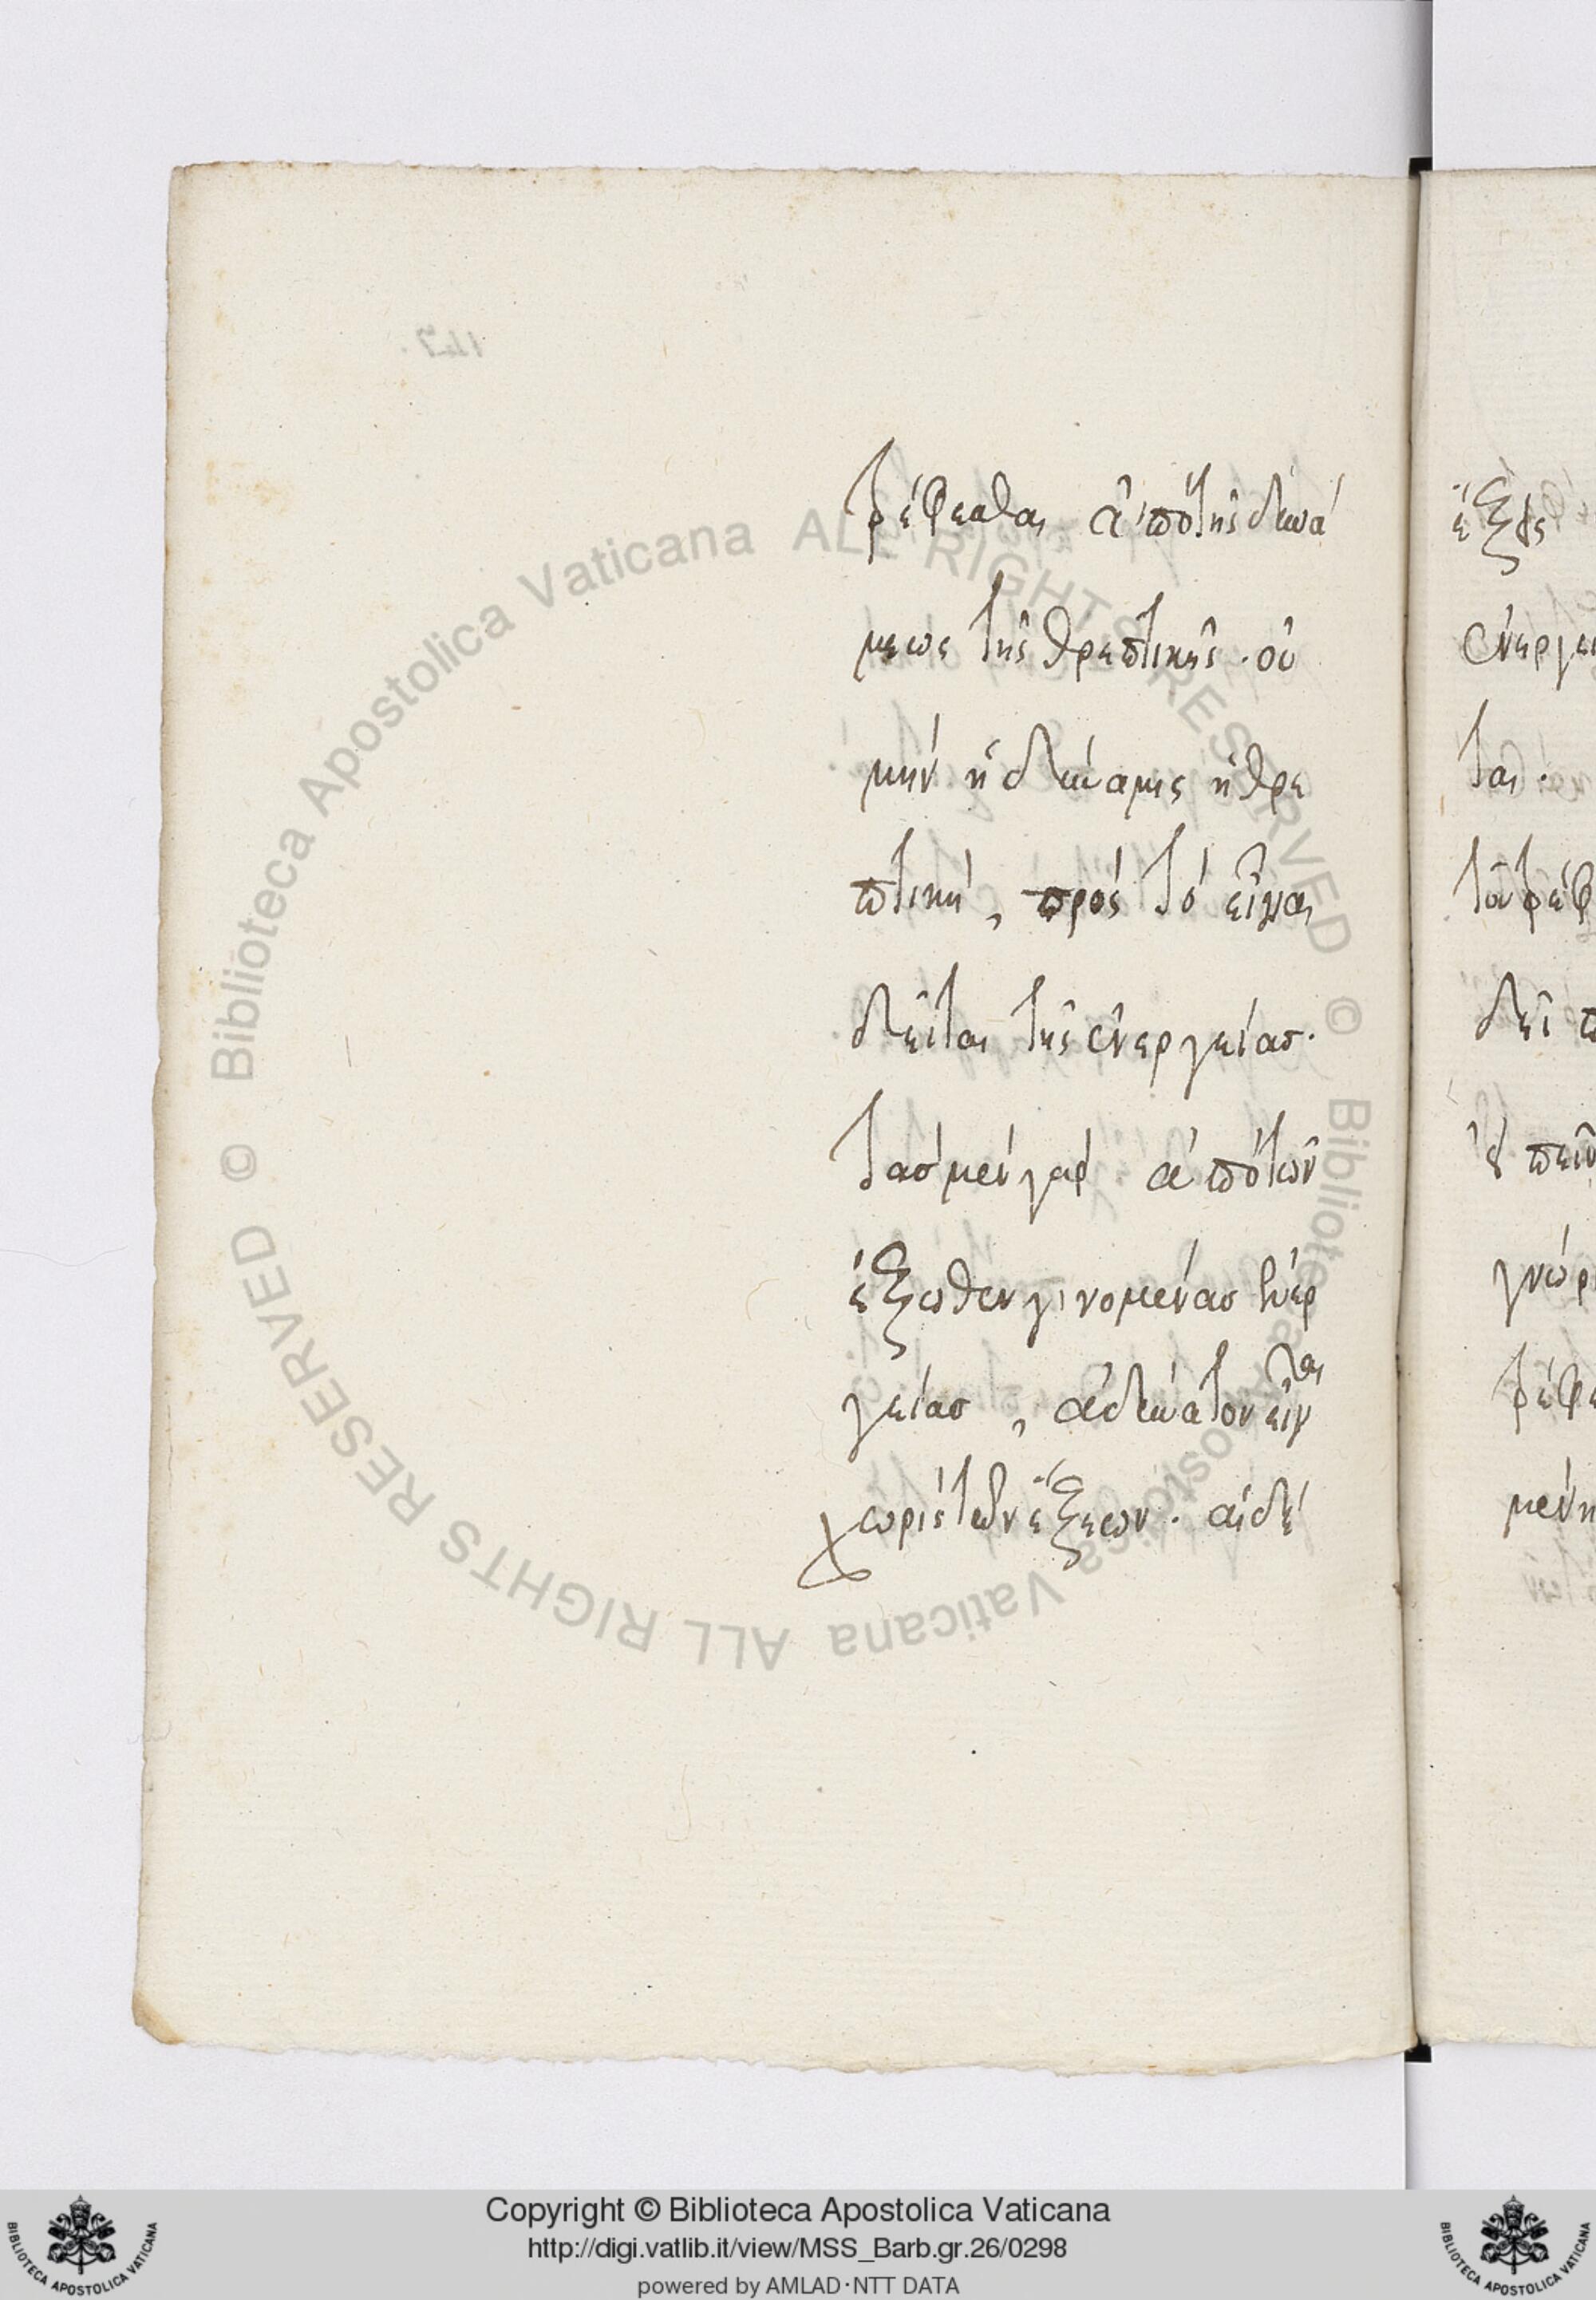 τρέφεσθαι ἀπὸ τῆς δυνά
μεως τῆς θρεπτικῆς. οὐ
μὴν ἡ δύναμις ἡ θρε
πτικὴ, πρὸς τὸ εἶναι
δεῖται τῆς ἐνεργείας.
τὰς μὲν γὰρ ἀπὸ τῶν
ἔξωθεν γινομένας ἐνερ
γείας, ἀδύνατον εἶναι
χωρὶς τῶν ἕξεων. αἱ δὲ
ἕξεις
ἐνεργει
ται.
τὸ τρέφ
δεῖ π
γνωρ
τρέφε
μένη
Copyright © Biblioteca Apostolica Vaticana
http://digi.vatlib.it/view/MSS_Barb.gr.26/0298
powered by AMLAD·NTT DATA
© Biblioteca Apostolica Vaticana ALL RIGHTS RESERVED © Biblioteca Apostolica Vaticana ALL RIGHTS RESERVED
BIBLIOTECA APOSTOLICA VATICANA
BIBLIOTECA APOSTOLICA VATICANA